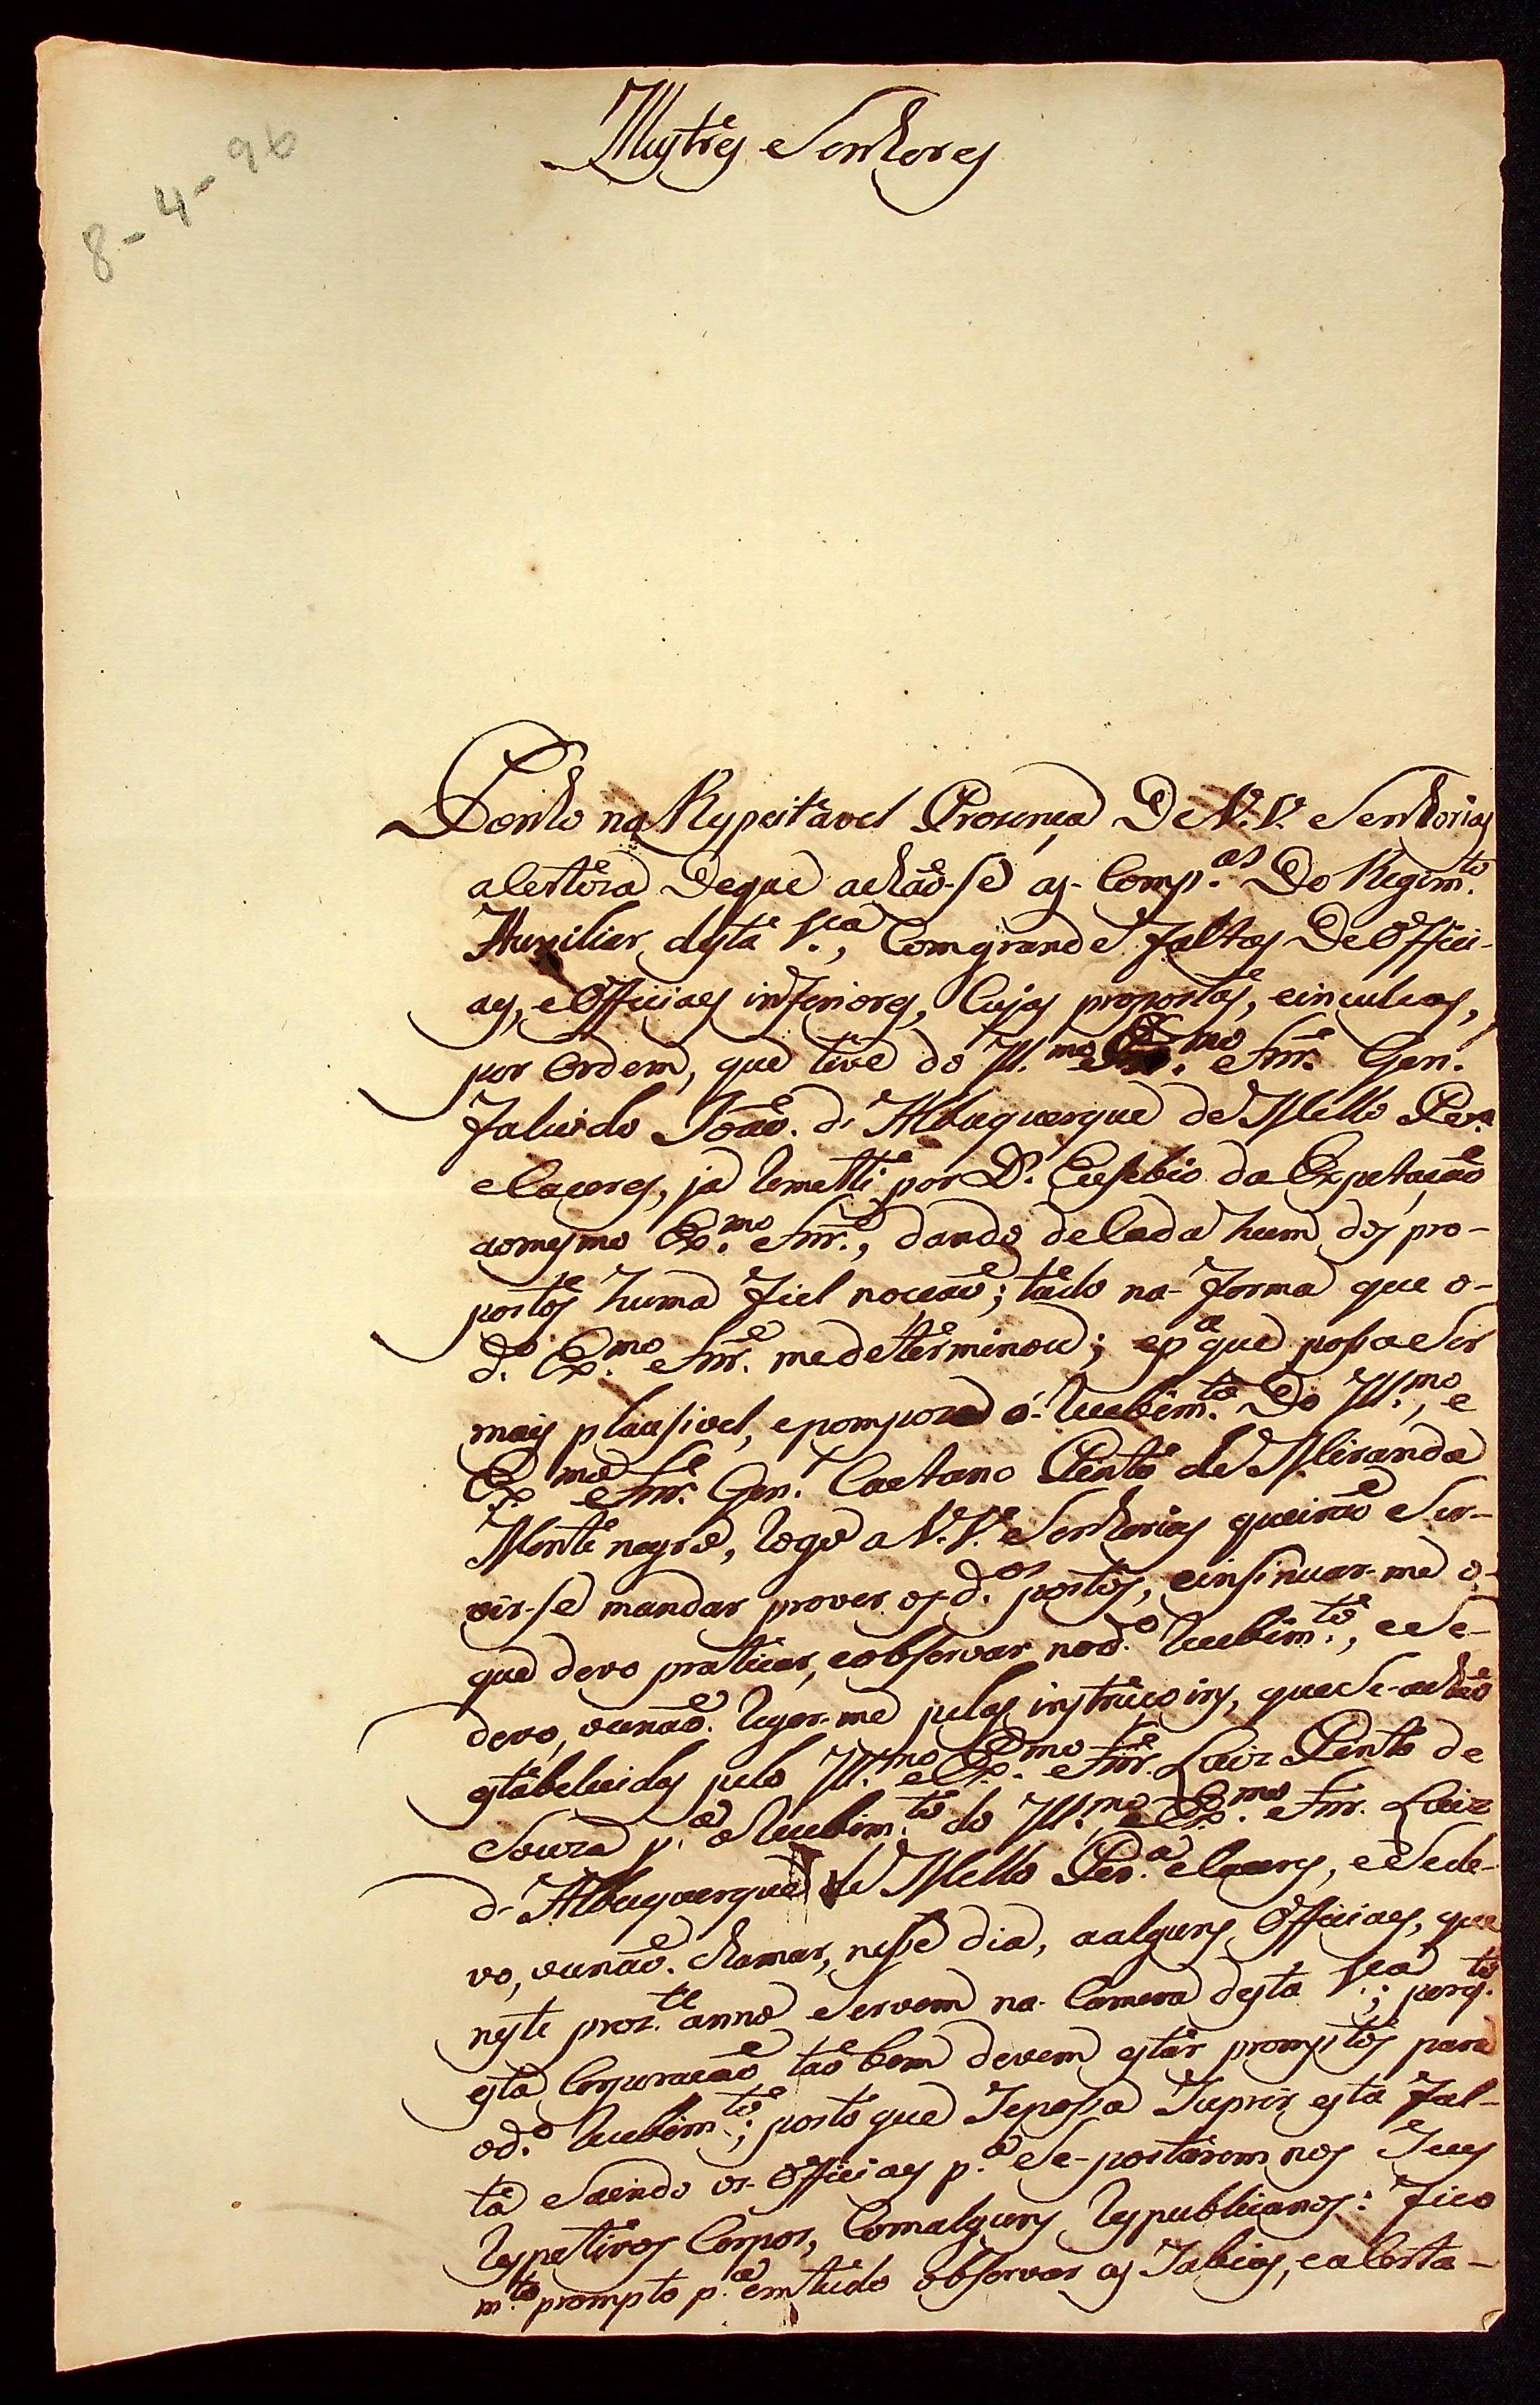 8-4-96
Illustres Senhores
Ponho na Respeitavel Prezença De V.V. Senhorias
a Certeza de que achão-se as Comp.as Do Regim.to
Auxiliar desta V.a, Com grande faltas De Offici-
aes, e Officiaes inferiores, Cujas propostas, e inculcas,
por Ordem, que tive do Ill.mo e Ex.mo Snr. Gen.l
falecido João d'Albuquerque de Mello Per.a
e Caceres, já remetti por D. Eusebio da Expetação
ao mesmo Ex.mo Snr., dando de Cada hum dos pro-
postos huma fiel noceaõ; tudo na forma que o
d.o Ex.mo Snr. me determinou; e p.a que possa Ser
mais plausivel, e pompozo o recebim.to Do Ill.mo, e
Ex.mo Snr. Gen.l Caetano Pinto de Miranda
Montenegro, rogo a V.V. Senhorias queirão Ser-
vir-se mandar prover os d.os postos, e insinuar-me o
que devo praticar, e observar no d.o recebim.to, e Se
devo, ou não reger-me pelas instrucoins, que Se-achão
estabelecidas pelo Ill.mo e Ex.mo Snr. Luiz Pinto de
Souza p.a o recebim.to do Ill.mo e Ex.mo Snr. Luiz
d'Albuquerque de Mello Per.a e Caceres, e Se de-
vo, ou não chamar, nesse dia, a alguns Officiaes, que
neste prez.te anno Servem na Camera desta V.a; porq.to
esta Corporação tão bem devem estar promptos para
o d.o recebim.to; posto que Se possa Suprir esta fal-
ta Saindo os Officiaes p.a Se-postarem nos Seus
respetivos Corpos, Com alguns respublicanos: fico
m.to prompto p.a em tudo observar as Sabias, e acerta-